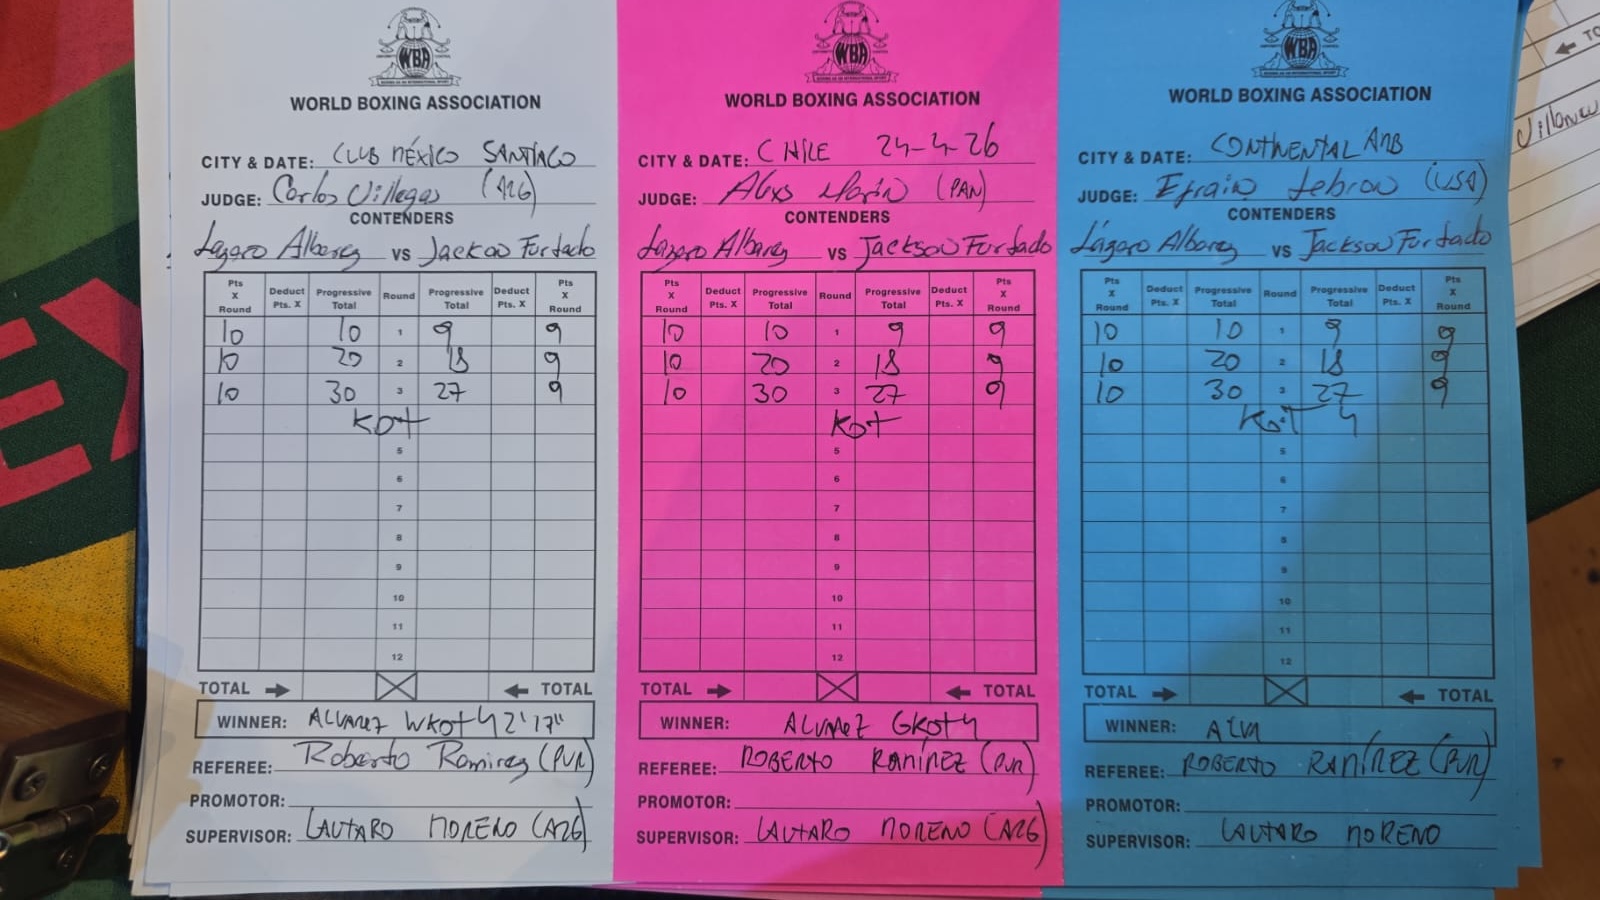 WBA
WORLD BOXING ASSOCIATION
CITY & DATE: CLUB MÉXICO SANTIAGO
JUDGE: Carlos Villegas (ARG)
CONTENDERS
Lázaro Albarez VS Jackson Furtado
Pts X Round Deduct Pts. X Progressive Total Round Progressive Total Deduct Pts. X Pts X Round
10 10 1 9 9
10 20 2 18 9
10 30 3 27 9
KOT
5
6
7
8
9
10
11
12
TOTAL TOTAL
WINNER: ALVAREZ WKOT4 2'17"
REFEREE: Roberto Ramirez (PUR)
PROMOTOR:
SUPERVISOR: LAUTARO MORENO (ARG)
WBA
WORLD BOXING ASSOCIATION
CITY & DATE: CHILE 24-4-26
JUDGE: (PAN)
CONTENDERS
Lázaro Albarez VS Jackson Furtado
Pts X Round Deduct Pts. X Progressive Total Round Progressive Total Deduct Pts. X Pts X Round
10 10 1 9 9
10 20 2 18 9
10 30 3 27 9
KOT
5
6
7
8
9
10
11
12
TOTAL TOTAL
WINNER: ALVAREZ GKOT4
REFEREE: ROBERTO RAMÍREZ (PUR)
PROMOTOR:
SUPERVISOR: LAUTARO MORENO (ARG)
WBA
WORLD BOXING ASSOCIATION
CITY & DATE: CONTINENTAL
JUDGE: Efrain Lebron (USA)
CONTENDERS
Lázaro Albarez VS Jackson Furtado
Pts X Round Deduct Pts. X Progressive Total Round Progressive Total Deduct Pts. X Pts X Round
10 10 1 9 9
10 20 2 18 9
10 30 3 27 9
KOT 4
5
6
7
8
9
10
11
12
TOTAL TOTAL
WINNER: ALVA
REFEREE: ROBERTO RAMÍREZ (PUR)
PROMOTOR:
SUPERVISOR: LAUTARO MORENO